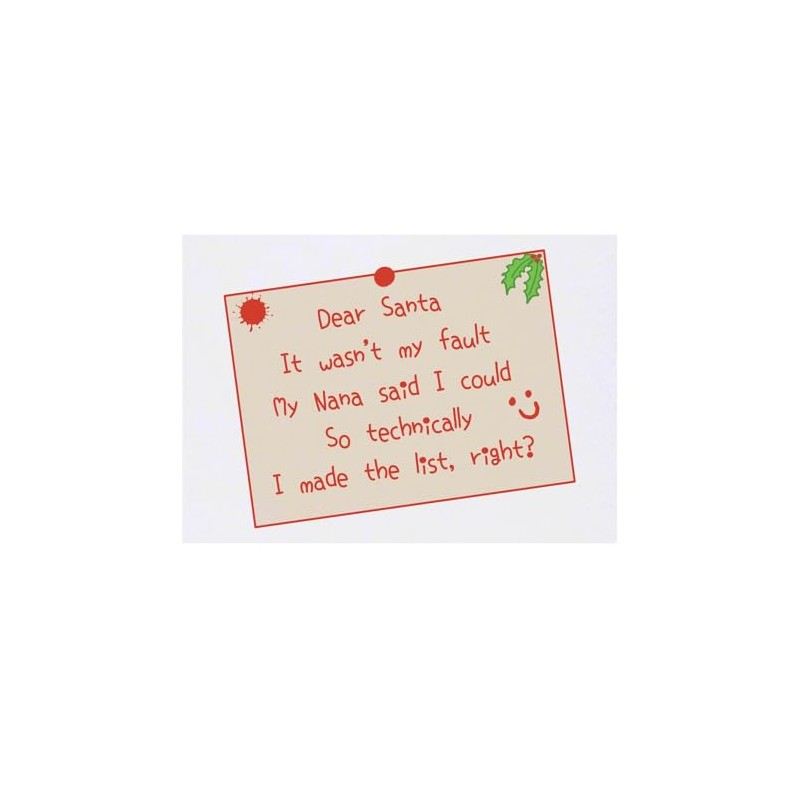 Dear Santa
It wasn't my fault
My Nana said I could
So technically
I made the list, right?